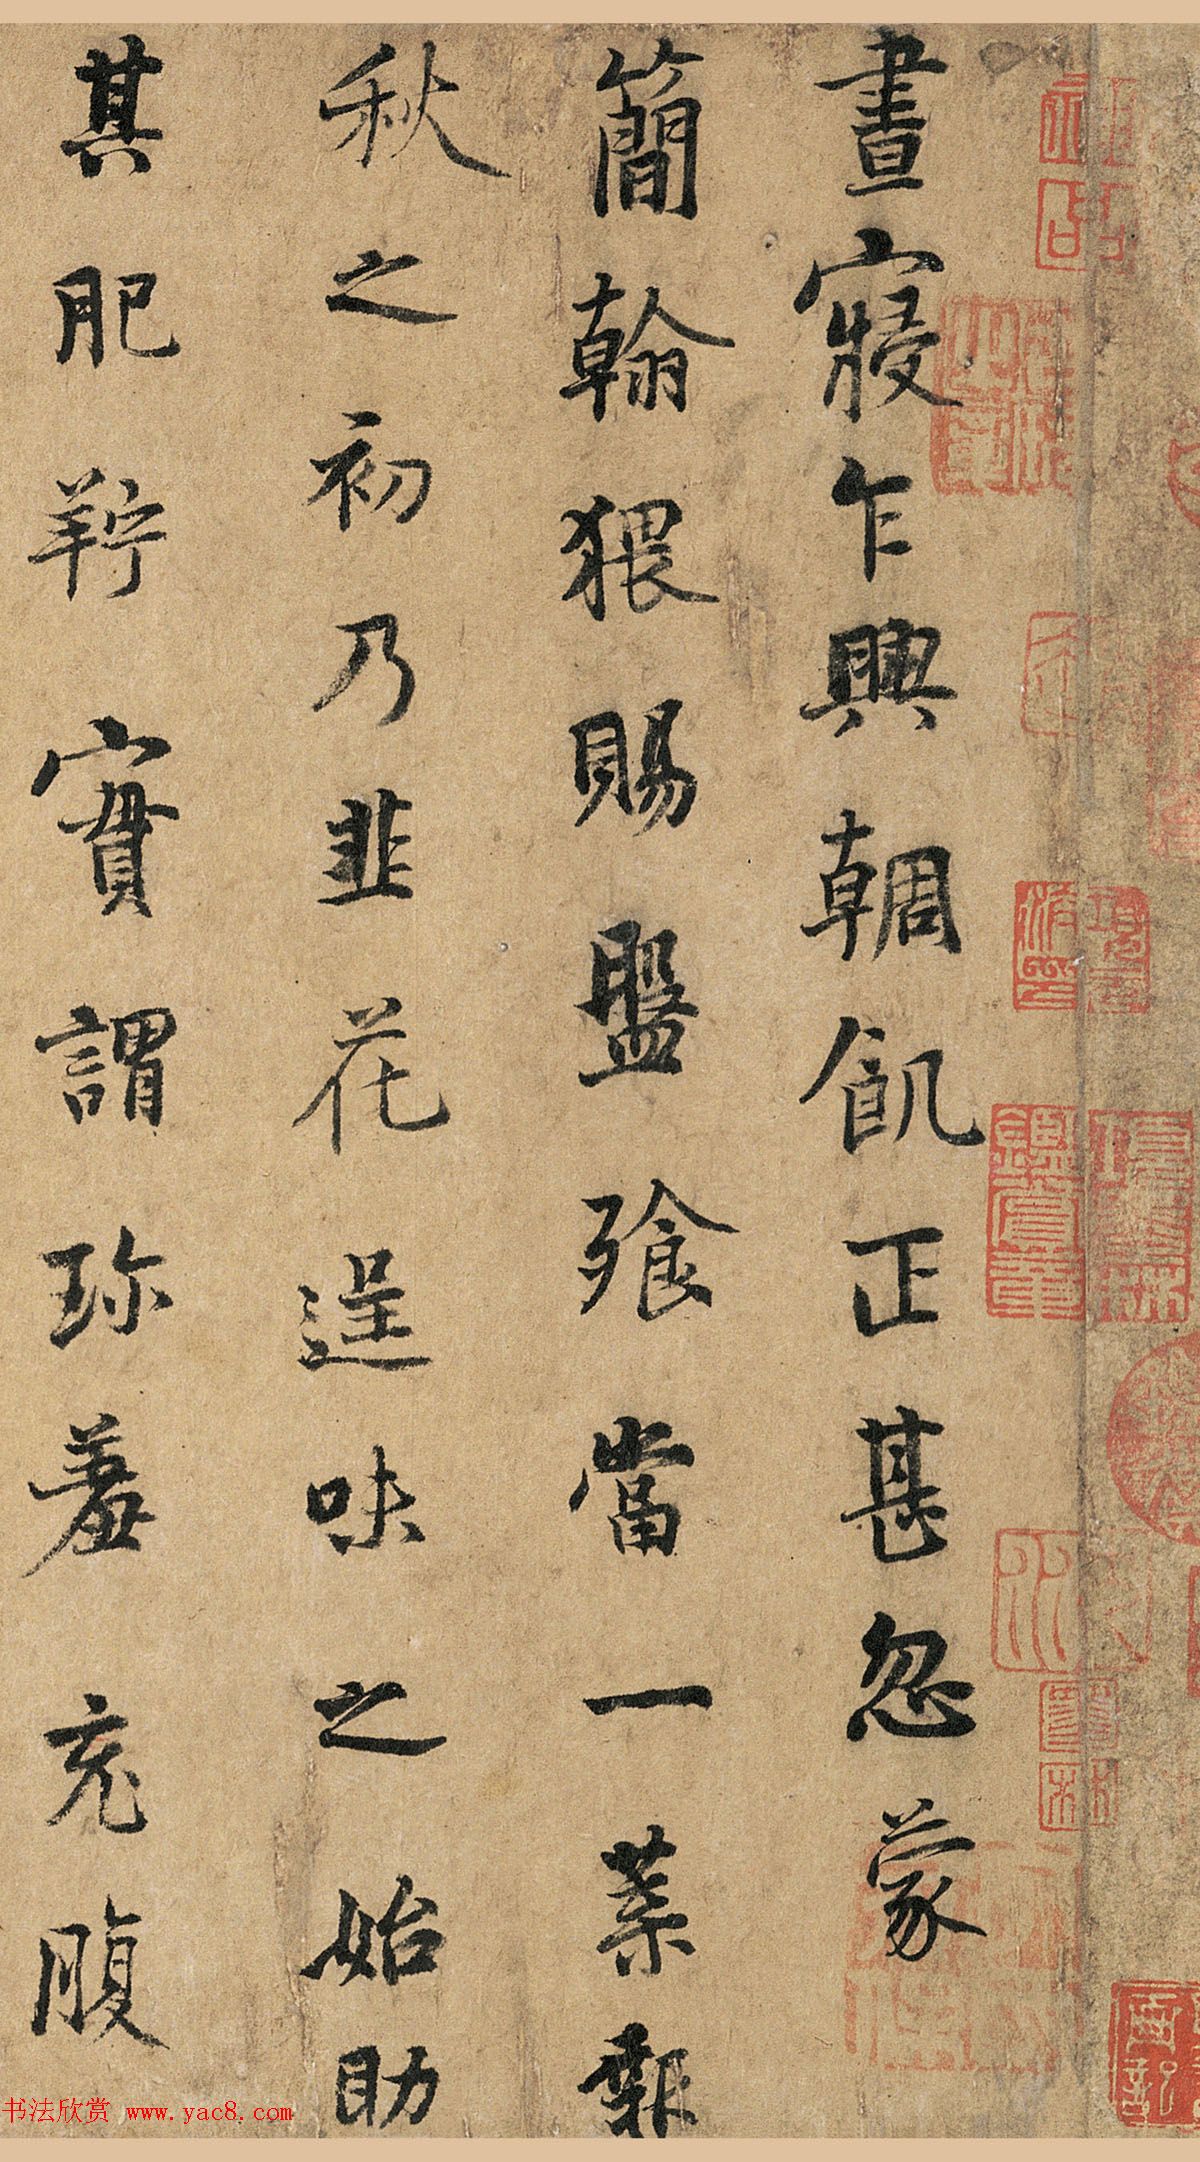 晝寢乍興輖飢正甚忽蒙
簡翰猥賜盤飧當一葉報
秋之初乃韭花逞味之始助
其肥羜實謂珍羞充腹
书法欣赏 www.yac8.com